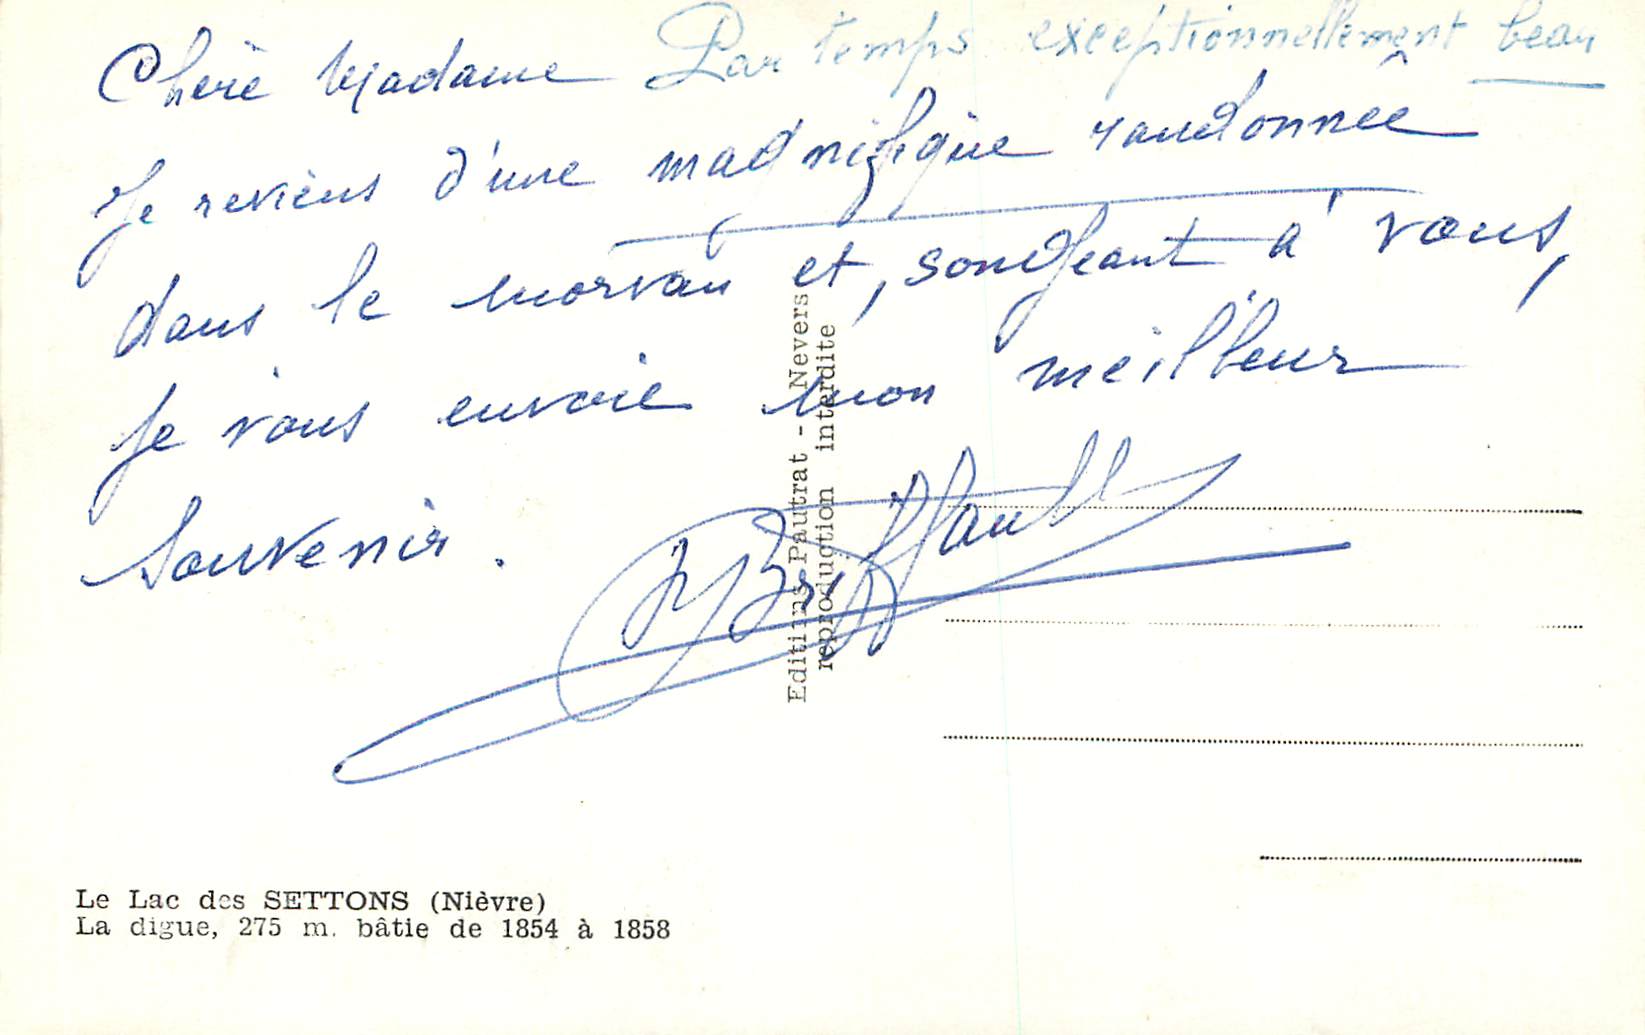 Chère Madame Par temps exceptionnellement beau
Je reviens d'une magnifique randonnée
dans le Morvan et, songeant à vous,
je vous envoie mon meilleur
Souvenir.
Briffault
Editiins Pautrat - Nevers
reproduction interdite
Le Lac des SETTONS (Nièvre)
La digue, 275 m. bâtie de 1854 à 1858